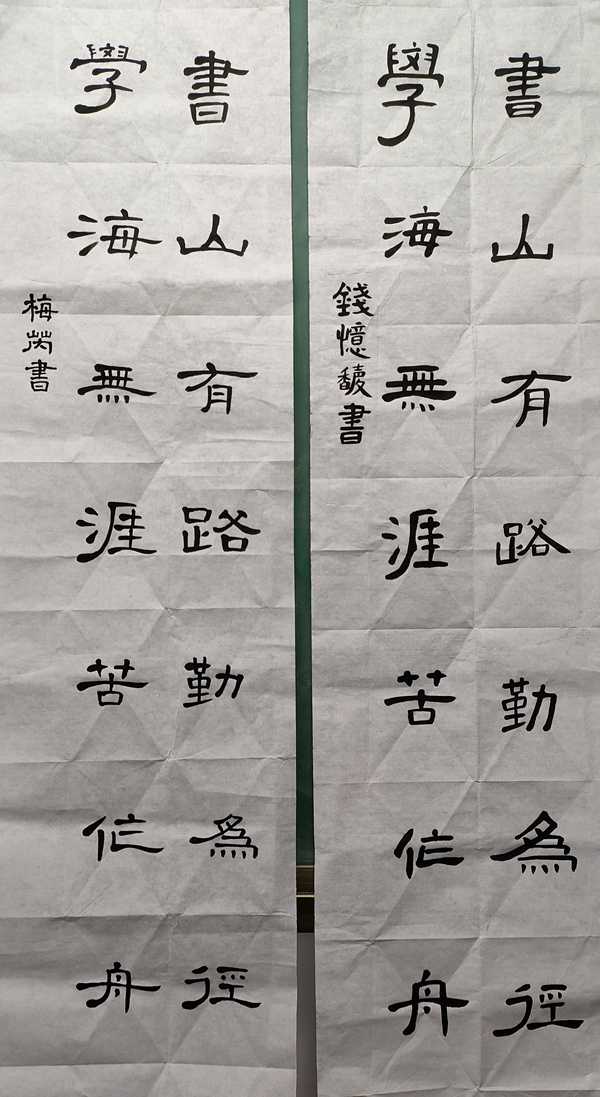 書山有路勤為徑
學海無涯苦作舟
錢憶馥書
書山有路勤為徑
學海無涯苦作舟
梅苪書